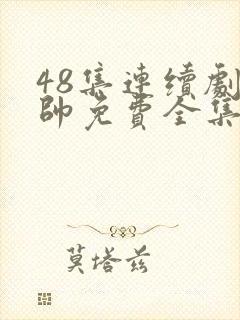 48集連續劇
帥免費全集
莫塔茲